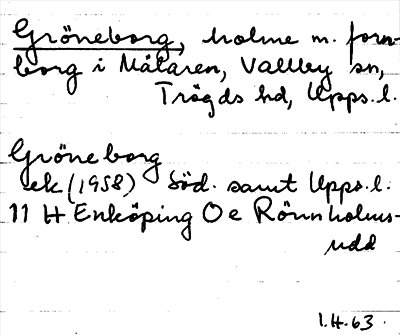 Gröneborg, holme m. forn-
borg i Mälaren, Vallby sn,
Trögds hd, Upps. l.
Gröneborg
ek (1958) Söd. samt Upps. l.
11 H Enköping O e Rönnholms-
udd
1.4.63.